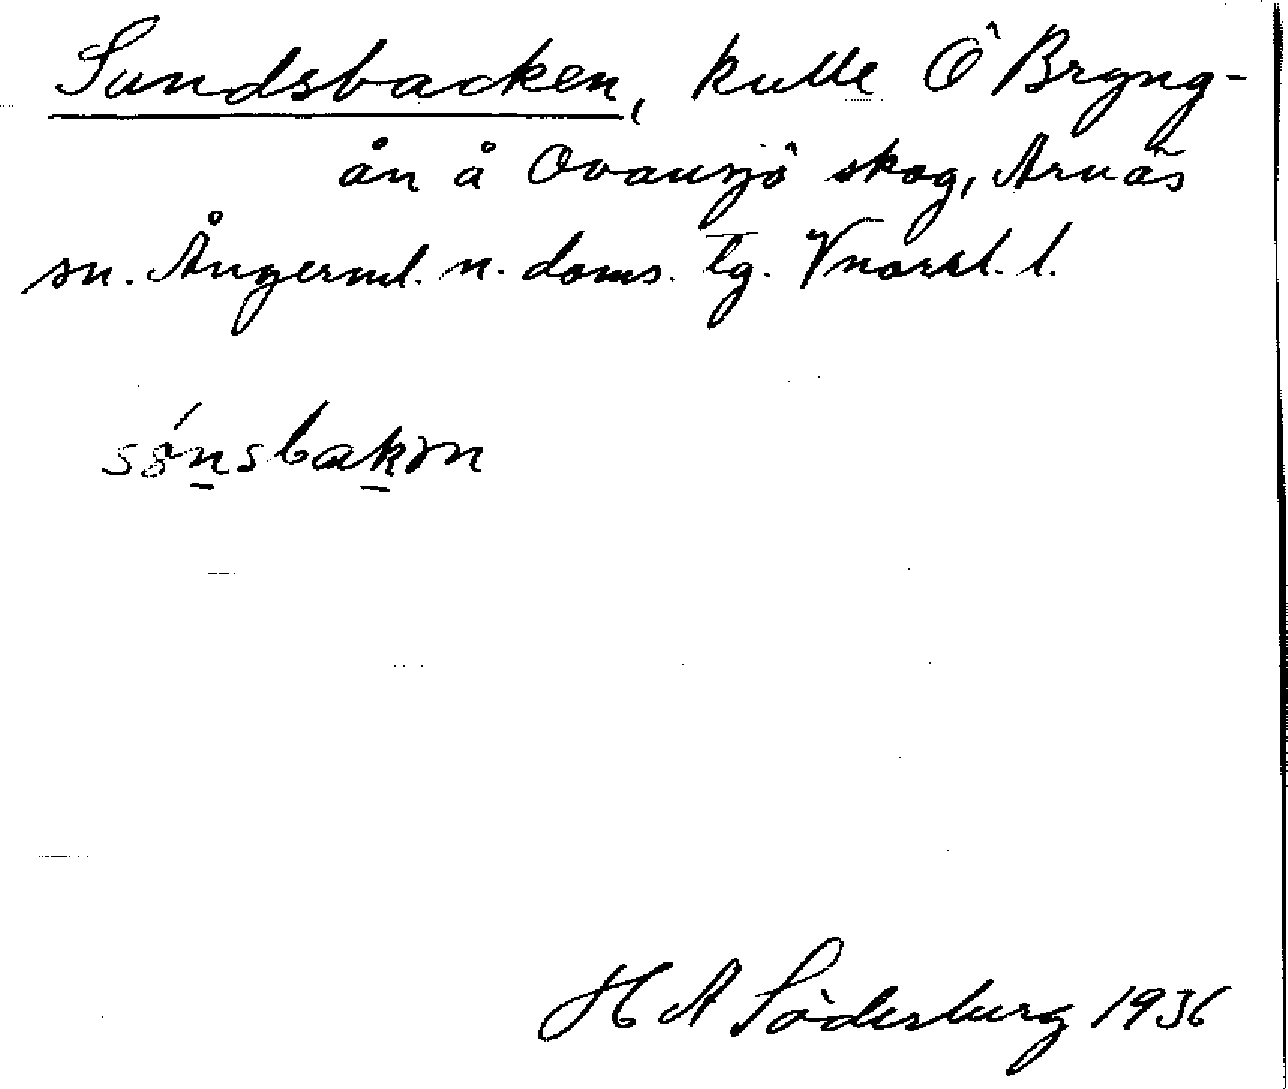 Sundsbacken, kulle Ö Bryng-
ån å Ovansjö skog, Arnäs
sn. Ångerml. n. doms. tg. Vnorrl. l.
sɵ́nsbakən
H A Söderberg 1936